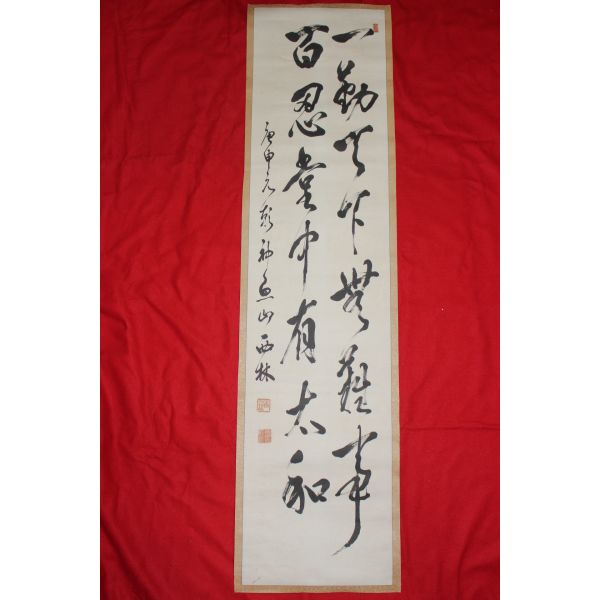 一勤天下無難事
百忍堂中有太和
庚申元 山西林